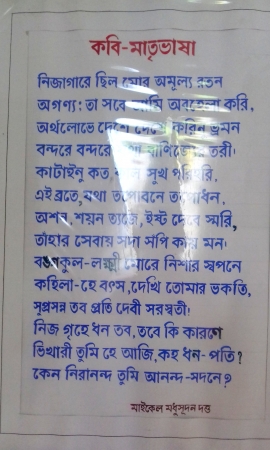 কবি-মাতৃভাষা
নিজাগারে ছিল মোর অমূল্য রতন
অগণ্য: তা সবে আমি অবহেলা করি,
অর্থলোভে দেশে দেশে করিনু ভ্রমন
বন্দরে বন্দরে যথা বাণিজ্যের তরী।
কাটাইনু কত কাল সুখ পরিহরি,
এই ব্রতে, যথা তপোবনে তপোধন,
অশন, শয়ন ত্যজে, ইষ্ট দেবে স্মরি,
তাঁহার সেবায় সদা সপি কায় মন।
বঙ্গকুল-লক্ষ্মী মোরে নিশার স্বপনে
কহিলা-হে বৎস, দেখি তোমার ভকতি,
সুপ্রসন্ন তব প্রতি দেবী সরস্বতী!
নিজ গৃহে ধন তব, তবে কি কারণে
ভিখারী তুমি হে আজি, কহ ধন-পতি?
কেন নিরানন্দ তুমি আনন্দ-সদনে?
মাইকেল মধুসূদন দত্ত